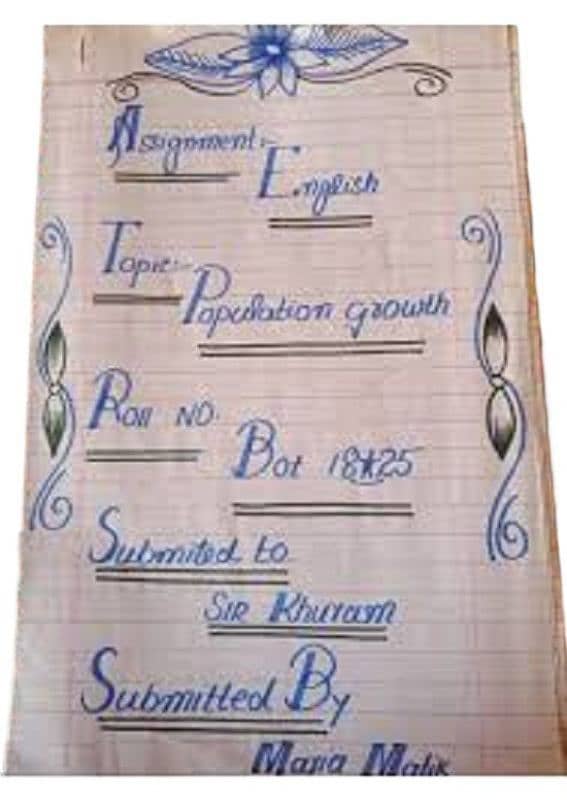 Assignment:-
English
Topic:-
Population growth
Roll NO.
Bot 18*25
Submited to
SIR Khuram
Submitted By
Maria Malik